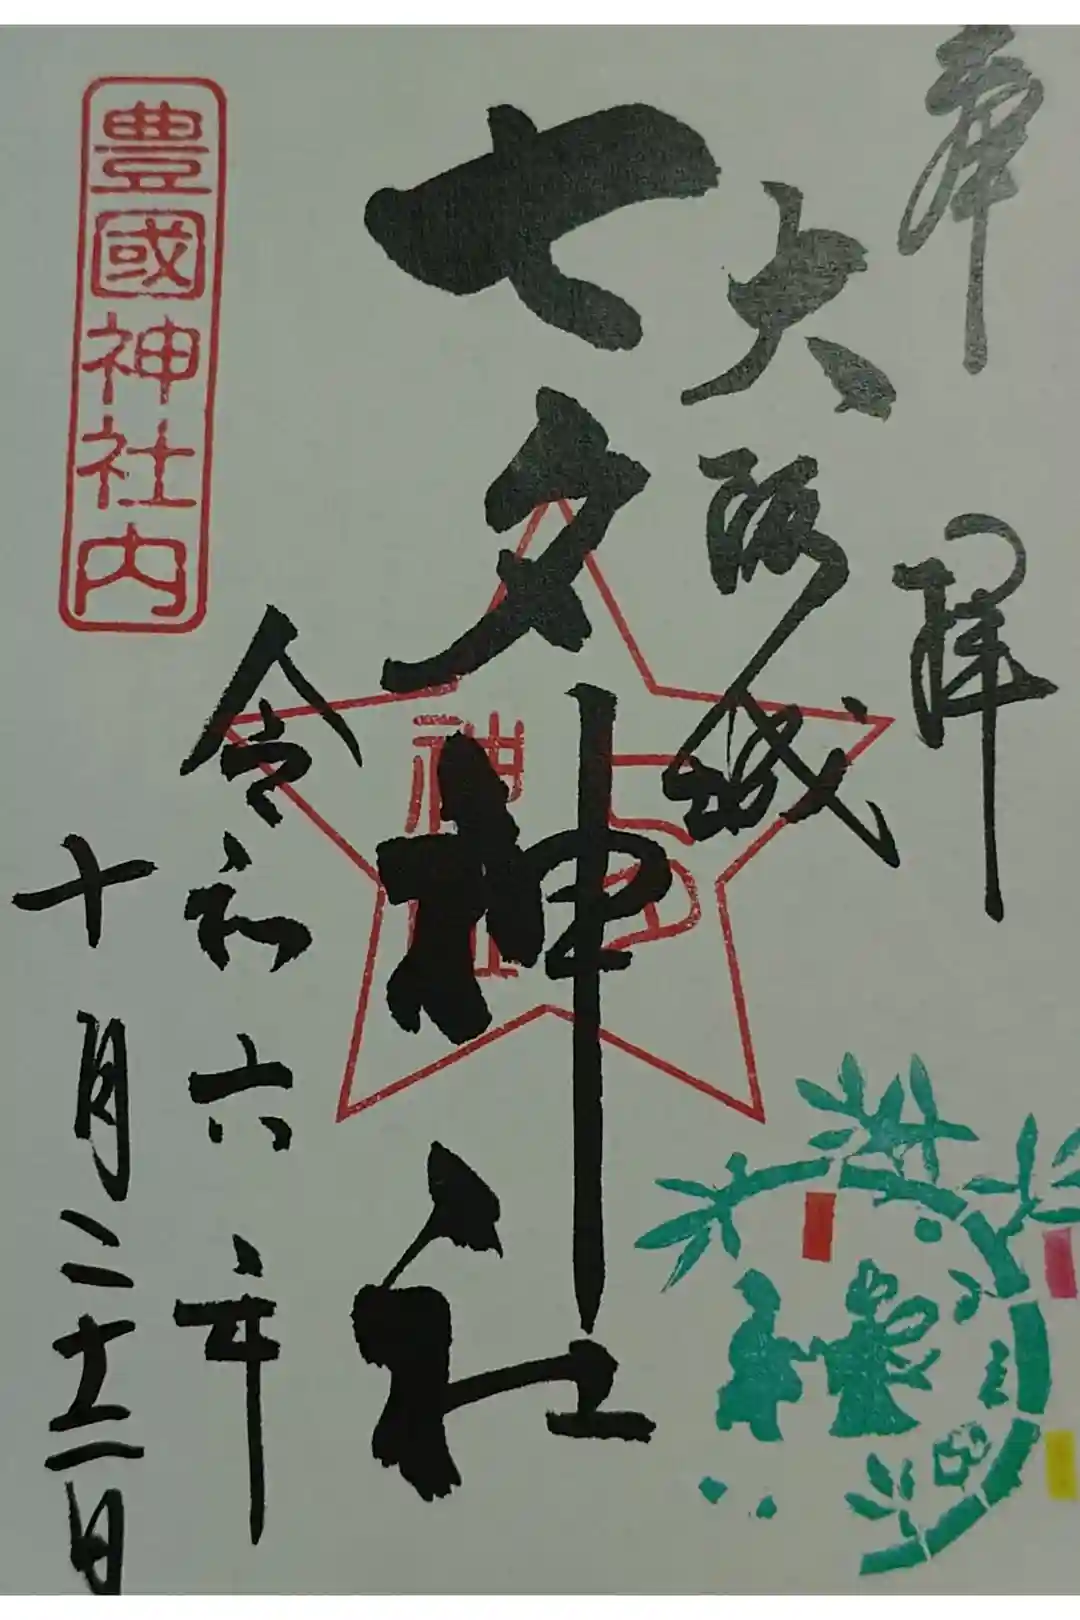 奉拝
大阪城
七夕神社
七夕
神社
令和六年
十月二十二日
豊國神社内